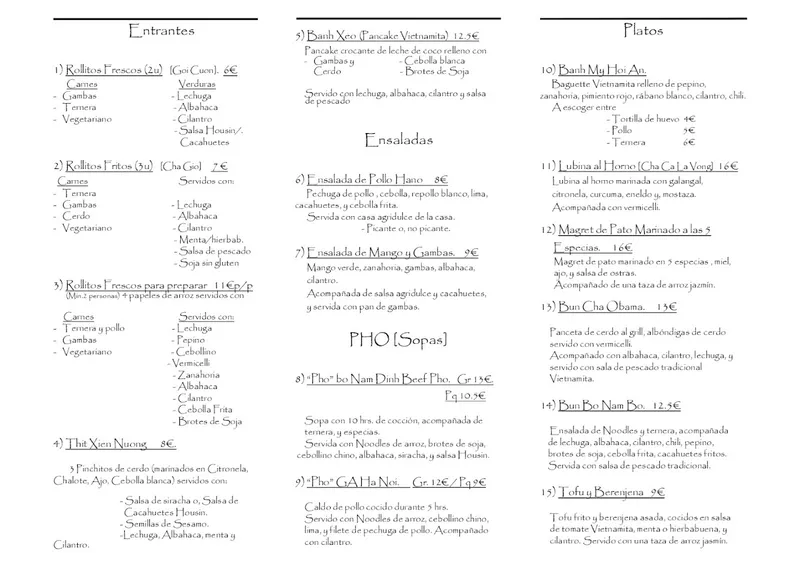 Entrantes
1) Rollitos Frescos (2u) [Goi Cuon]. 6€
Carnes Verduras
- Gambas - Lechuga
- Ternera - Albahaca
- Vegetariano - Cilantro
- Salsa Housin/.
Cacahuetes
2) Rollitos Fritos (3u) [Cha Gio] 7 €
Carnes Servidos con:
- Ternera
- Gambas - Lechuga
- Cerdo - Albahaca
- Vegetariano - Cilantro
- Menta/hierbab.
- Salsa de pescado
- Soja sin gluten
3) Rollitos Frescos para preparar 11€p/p
(Min.2 personas) 4 papeles de arroz servidos con
Carnes Servidos con:
- Ternera y pollo - Lechuga
- Gambas - Pepino
- Vegetariano - Cebollino
- Vermicelli
- Zanahoria
- Albahaca
- Cilantro
- Cebolla Frita
- Brotes de Soja
4) Thit Xien Nuong 8€.
3 Pinchitos de cerdo (marinados en Citronela,
Chalote, Ajo, Cebolla blanca) servidos con:
- Salsa de siracha o, Salsa de
Cacahuetes Housin.
- Semillas de Sesamo.
-Lechuga, Albahaca, menta y
Cilantro.
5) Banh Xeo (Pancake Vietnamita) 12.5€
Pancake crocante de leche de coco relleno con
- Gambas y - Cebolla blanca
Cerdo - Brotes de Soja
Servido con lechuga, albahaca, cilantro y salsa
de pescado
Ensaladas
6) Ensalada de Pollo Hano 8€
Pechuga de pollo , cebolla, repollo blanco, lima,
cacahuetes, y cebolla frita.
Servida con casa agridulce de la casa.
- Picante o, no picante.
7) Ensalada de Mango y Gambas. 9€
Mango verde, zanahoria, gambas, albahaca,
cilantro.
Acompañada de salsa agridulce y cacahuetes,
y servida con pan de gambas.
PHO [Sopas]
8) "Pho" bo Nam Dinh Beef Pho. Gr 13€.
Pq 10.5€
Sopa con 10 hrs. de cocción, acompañada de
ternera, y especias.
Servida con Noodles de arroz, brotes de soja,
cebollino chino, albahaca, siracha, y salsa Housin.
9) "Pho" GA Ha Noi. Gr. 12€ / Pq 9€
Caldo de pollo cocido durante 5 hrs.
Servido con Noodles de arroz, cebollino chino,
lima, y filete de pechuga de pollo. Acompañado
con cilantro.
Platos
10) Banh My Hoi An.
Baguette Vietnamita relleno de pepino,
zanahoria, pimiento rojo, rábano blanco, cilantro, chili.
A escoger entre
- Tortilla de huevo 4€
- Pollo 5€
- Ternera 6€
11) Lubina al Horno [Cha Ca La Vong] 16€
Lubina al horno marinada con galangal,
citronela, curcuma, eneldo y, mostaza.
Acompañada con vermicelli.
12) Magret de Pato Marinado a las 5
Especias. 16€
Magret de pato marinado en 5 especias , miel,
ajo, y salsa de ostras.
Acompañado de una taza de arroz jazmín.
13) Bun Cha Obama. 13€
Panceta de cerdo al grill, albóndigas de cerdo
servido con vermicelli.
Acompañado con albahaca, cilantro, lechuga, y
servido con sala de pescado tradicional
Vietnamita.
14) Bun Bo Nam Bo. 12.5€
Ensalada de Noodles y ternera, acompañada
de lechuga, albahaca, cilantro, chili, pepino,
brotes de soja, cebolla frita, cacahuetes fritos.
Servida con salsa de pescado tradicional.
15) Tofu y Berenjena 9€
Tofu frito y berenjena asada, cocidos en salsa
de tomate Vietnamita, menta o hierbabuena, y
cilantro. Servido con una taza de arroz jasmín.